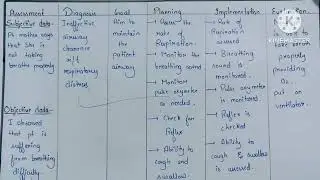 Assessment
Subjective data-
Pt mother says
that she is
not taking
breath properly
Objective data-
I observed
that pt is
suffering
from breathing
difficulty.
Diagnosis
Ineffective
airway
clearance
r/t
respiratory
distress
Goal
Aim to
maintain
the
patient
airway
Planning
→ the
rate of
Respiration.
→ Monitor the
breathing sound
→ Monitor
pulse oxymeter
as needed.
→ Check for
Reflex
→ Ability to
cough and
swallow.
Implementation
→ Rate of
Respiration
→ Breathing
sound is
monitored.
→ Pulse oxymeter
is monitored.
→ Reflex is
checked
→ Ability to
cough & swallow
is
Evaluation
to take
breath
properly
providing
O₂
put on
ventilator.
KINEMASTER